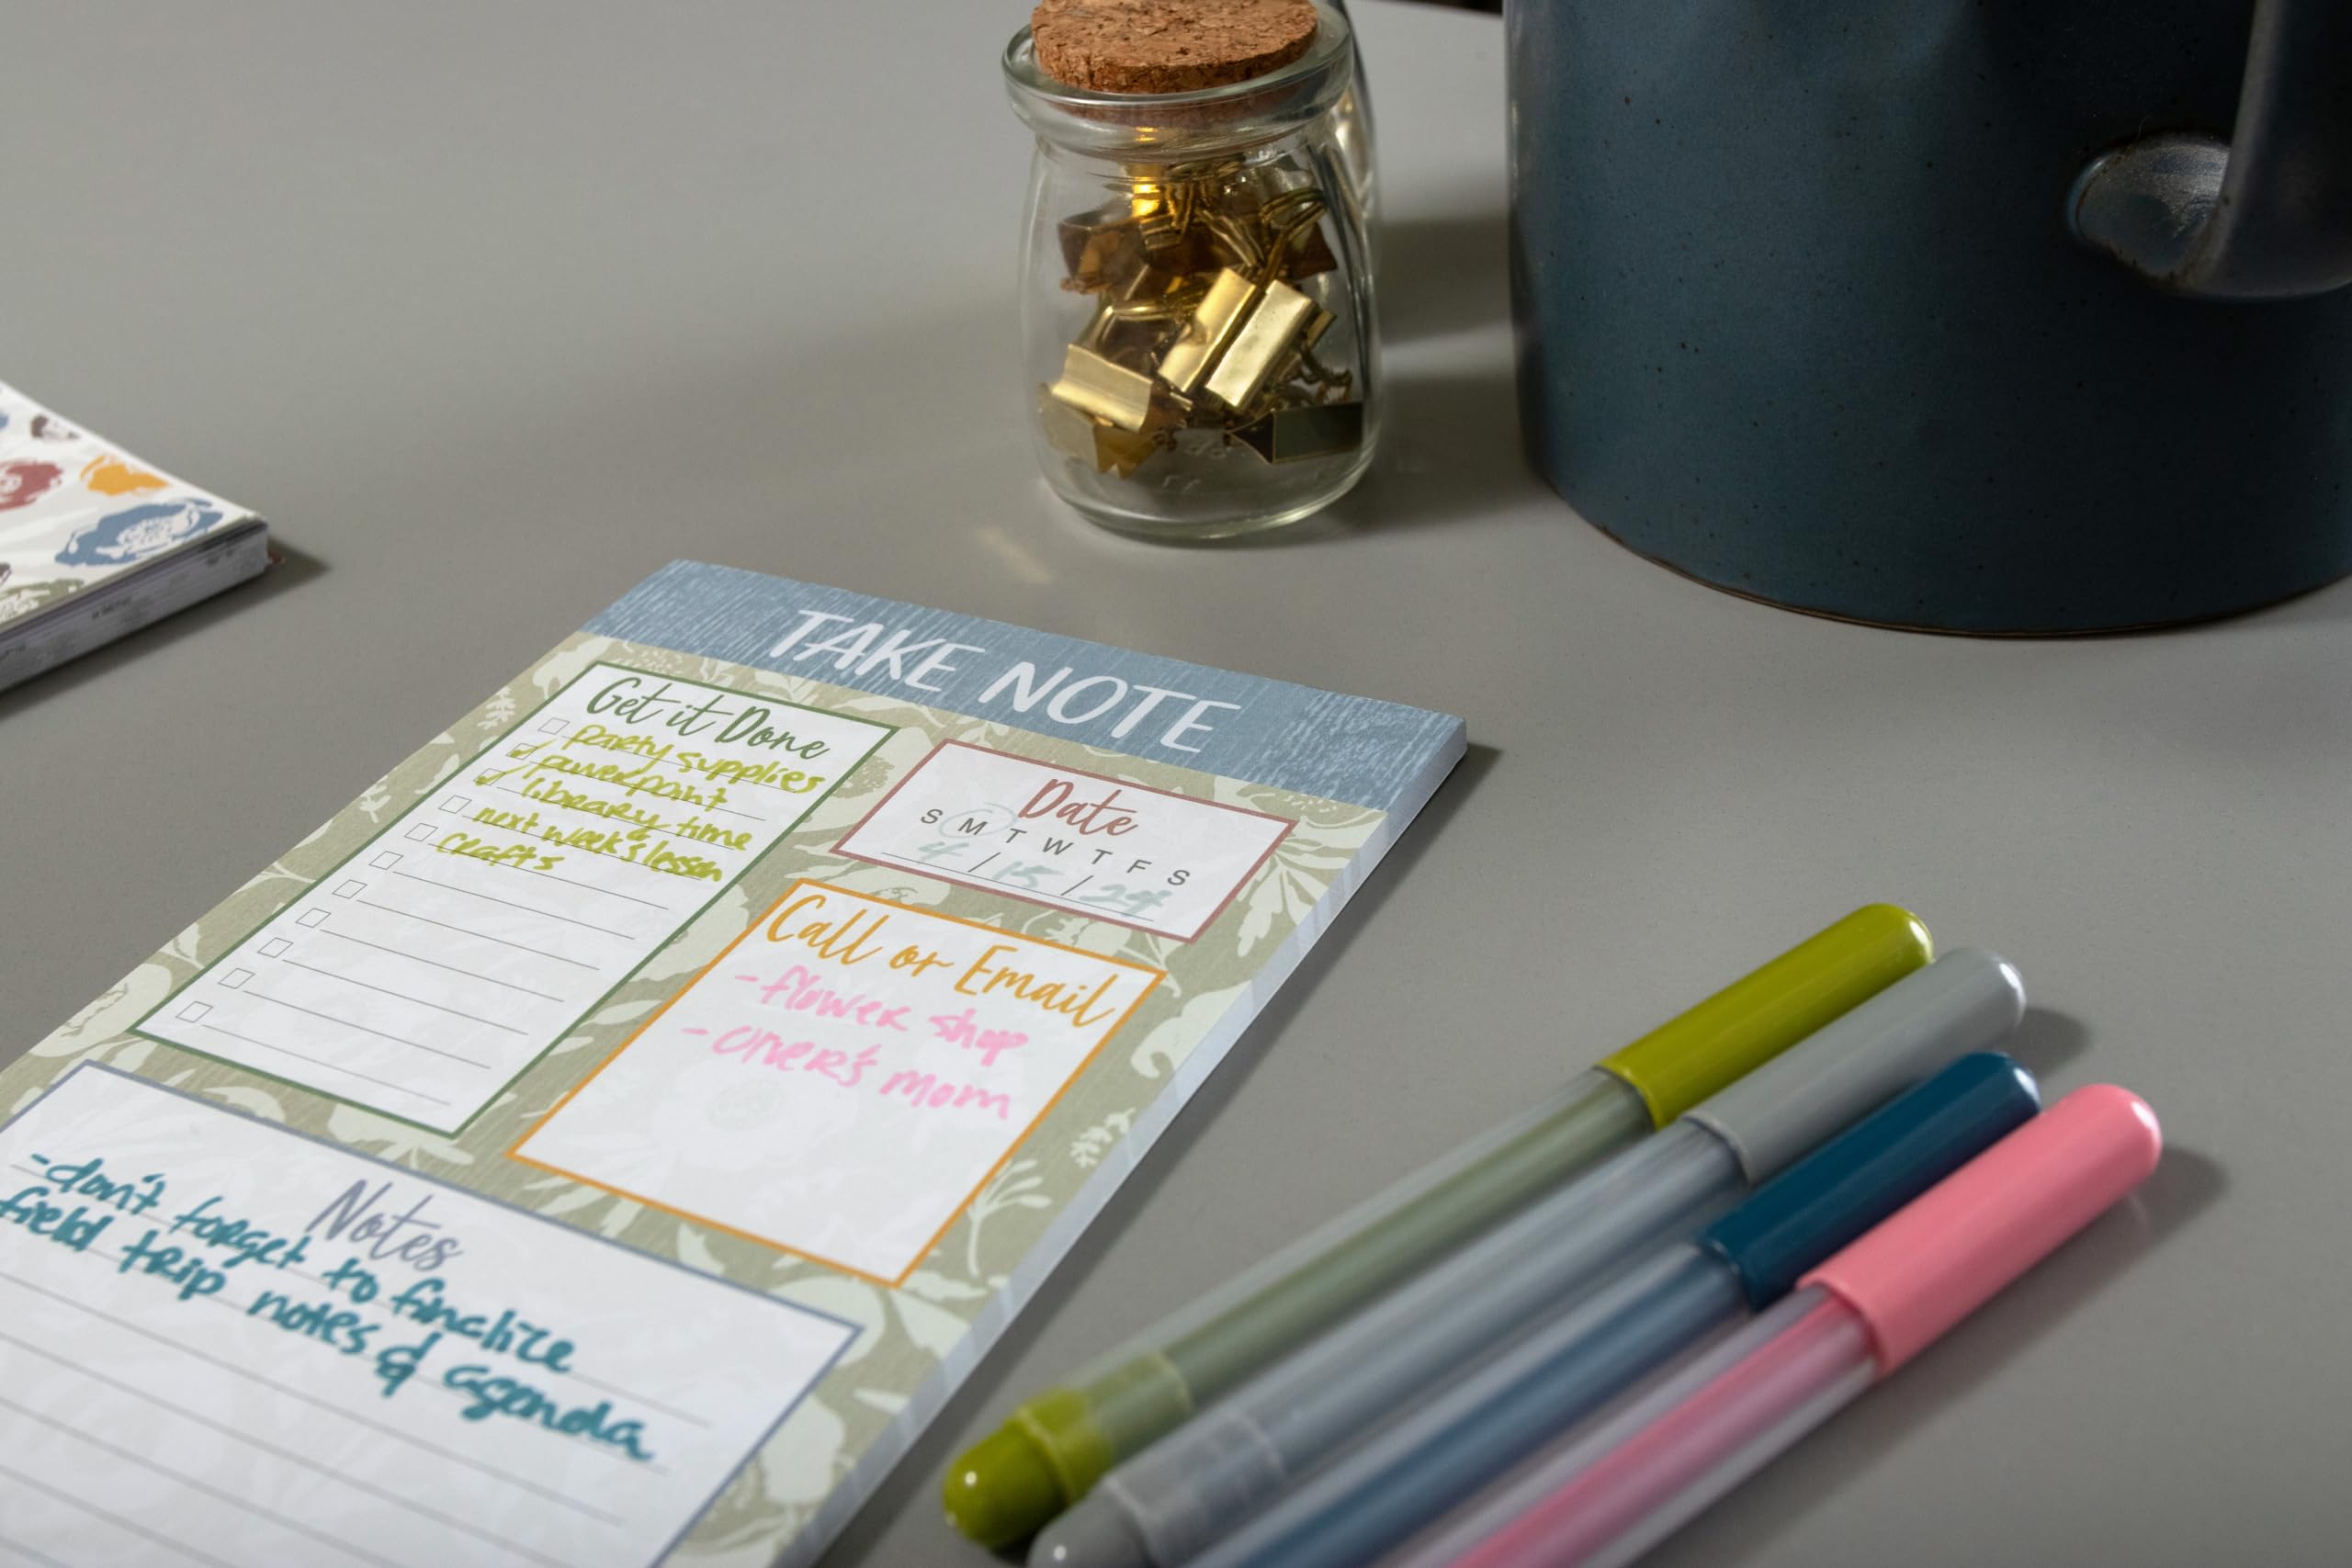 TAKE NOTE
Get it Done
party supplies
powerpoint
library time
next week's lesson
crafts
Date
S M T W T F S
4 / 15 / 24
Call or Email
- flower shop
- Oliver's mom
Notes
- don't forget to finalize
field trip notes & agenda